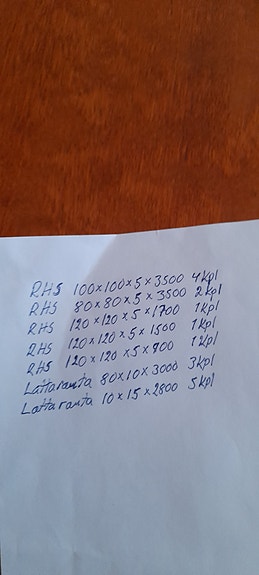 RHS 100x100x5x3500 4kpl
RHS 80x80x5x3500 2kpl
RHS 120x120x5x1700 1kpl
RHS 120x120x5x1500 1kpl
RHS 120x120x5x900 1kpl
Lattarauta 80x10x3000 3kpl
Lattarauta 10x15x2800 5kpl